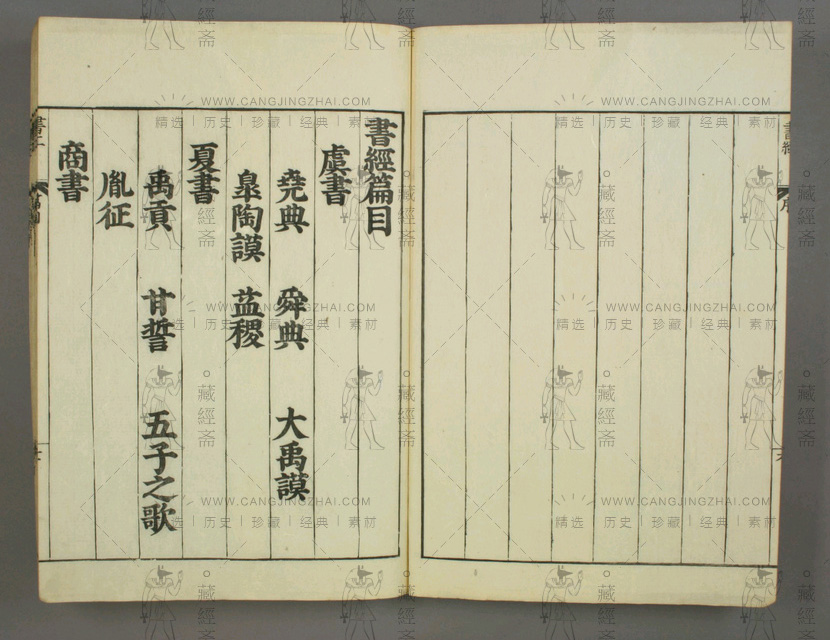 書經篇目
虞書
堯典 舜典 大禹謨
皐陶謨 益稷
夏書
禹貢 甘誓 五子之歌
胤征
商書
WWW.CANGJINGZHAI.COM
精选 | 历史 | 珍藏 | 经典 | 素材
藏經斋